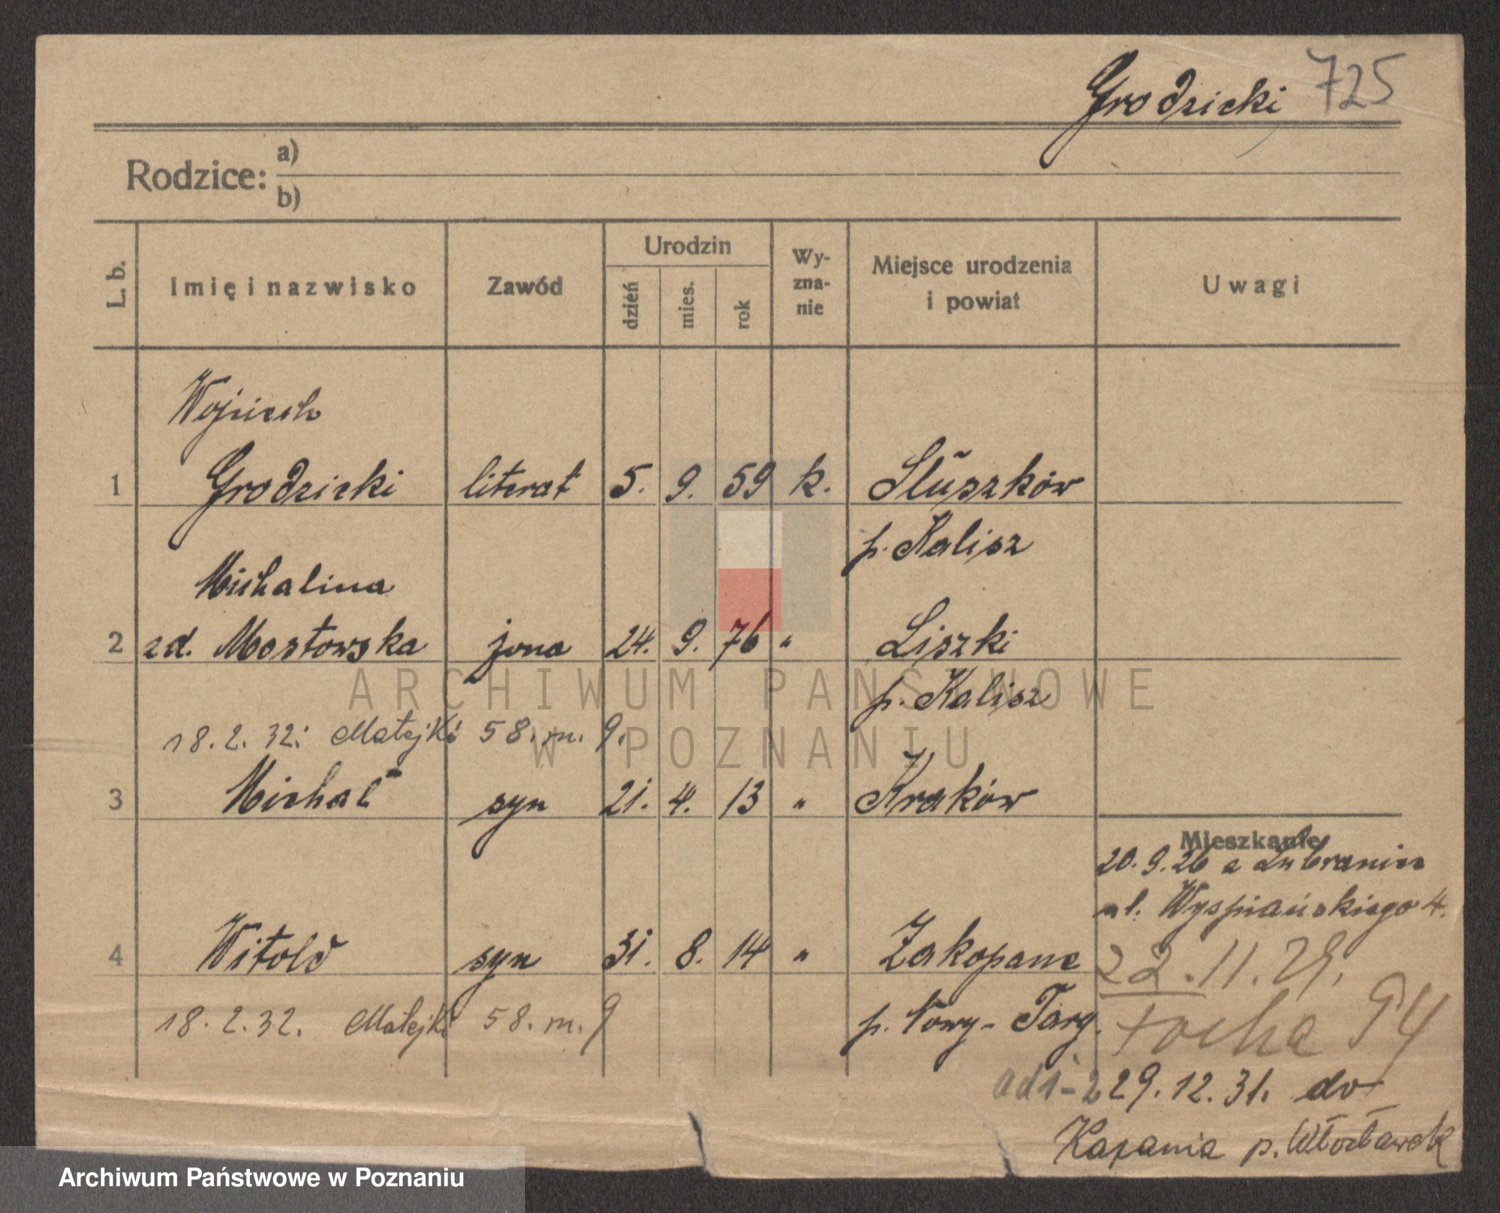 Grodzicki 725
Rodzice: a)
b)
L. b. Imię i nazwisko Zawód Urodzin dzień mies. rok Wy-zna-nie Miejsce urodzenia i powiat Uwagi
Wojciech
1 Grodzicki literat 5. 9. 59 k. Słuszków
p. Kalisz
Michalina
2 zd. Mostowska żona 24. 9. 76 " Liszki
p. Kalisz
18. 2. 32. Matejki 58. m. 9.
3 Michał syn 21. 4. 13 " Kraków
Mieszkanie
20. 9. 26 z Lubranin
ul. Wyspiańskiego 4.
4 Witold syn 31. 8. 14 " Zakopane
22. 11. 29.
18. 2. 32. Matejki 58. m. 9 p. Nowy-Targ.
Focha 94
ad 1-2 29. 12. 31. do
p. Włocławek
ARCHIWUM PAŃSTWOWE
W POZNANIU
Archiwum Państwowe w Poznaniu